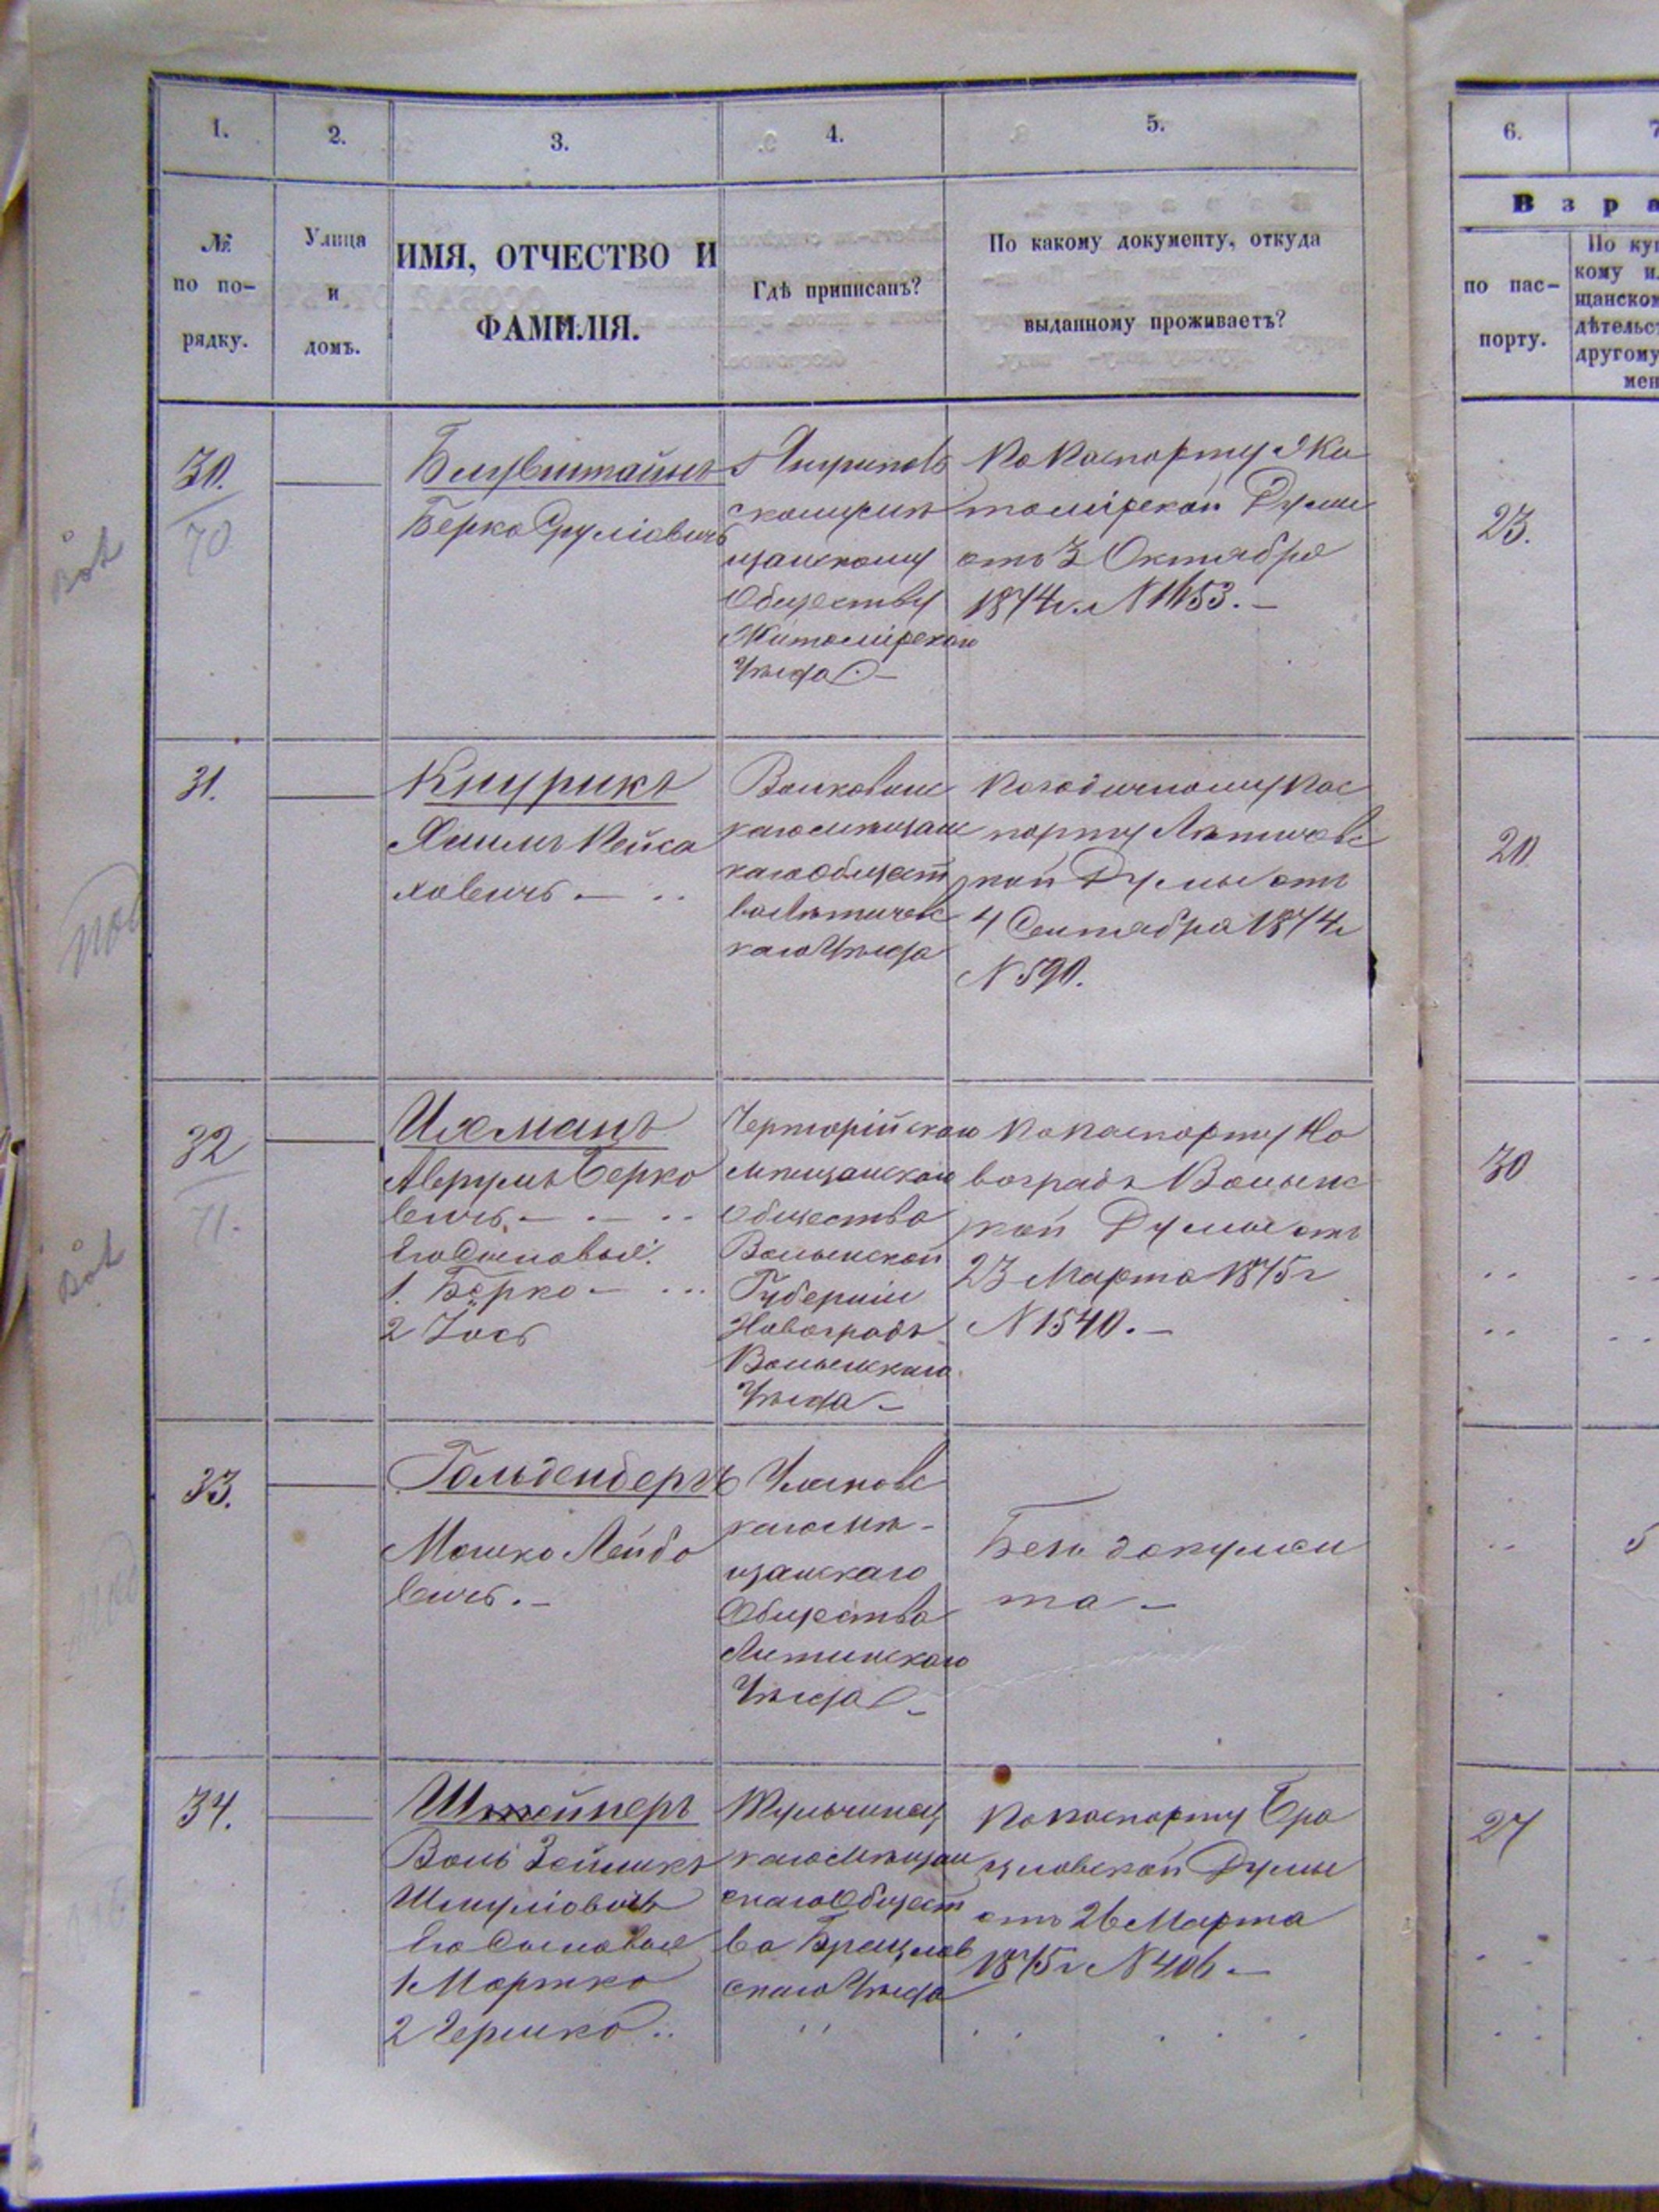 1.
2.
3.
4.
5.
6.
7
№
по по-
рядку.
Улица
и
домъ.
ИМЯ, ОТЧЕСТВО И
ФАМИЛІЯ.
Гдѣ приписанъ?
По какому документу, откуда
выданному проживаетъ?
В з р а
по пас-
порту.
По куп
кому ил
щанском
дѣтельст
другому
мен
30.
70
Берко Сруліовичъ
скому мѣ
щанскому
Обществу
Житомірскаго
Уѣзда
По паспорту Жи
томірской Думы
отъ 3 Октября
1874 г. №
23.
31.
Кицрикъ
ховичъ
Волковин
каго мѣщан
каго общест
ва Лѣтичев
каго Уѣзда
По годичному пас
порту Лѣтичевс
кой Думы отъ
4 Сентября 1874 г
№ 590.
20
32
71.
Ихманъ
Аврумъ Берко
вичъ
Его сыновья:
1. Берко
2 Іось
Черторійскаго
мѣщанскаго
Общества
Волынской
Губерніи
Новоградъ
Волынскаго
Уѣзда
По паспорту Но
воградъ Волынс
кой Думы отъ
23 Марта 1875 г
№ 1540.
30
33.
Гольденбергъ
Мошко Лейбо
вичъ.
Улановс
каго мѣ-
щанскаго
Общества
Литинскаго
Уѣзда
Безъ докумен
та
5
34.
Волъ Зейликъ
Шмуліовичъ
Его Сыновья
1 Мортко
2 Гершко
каго мѣщан
скаго Общест
ва Брацлав
скаго Уѣзда
По паспорту Бра
цлавской Думы
отъ 26 Марта
1875 г № 406
27